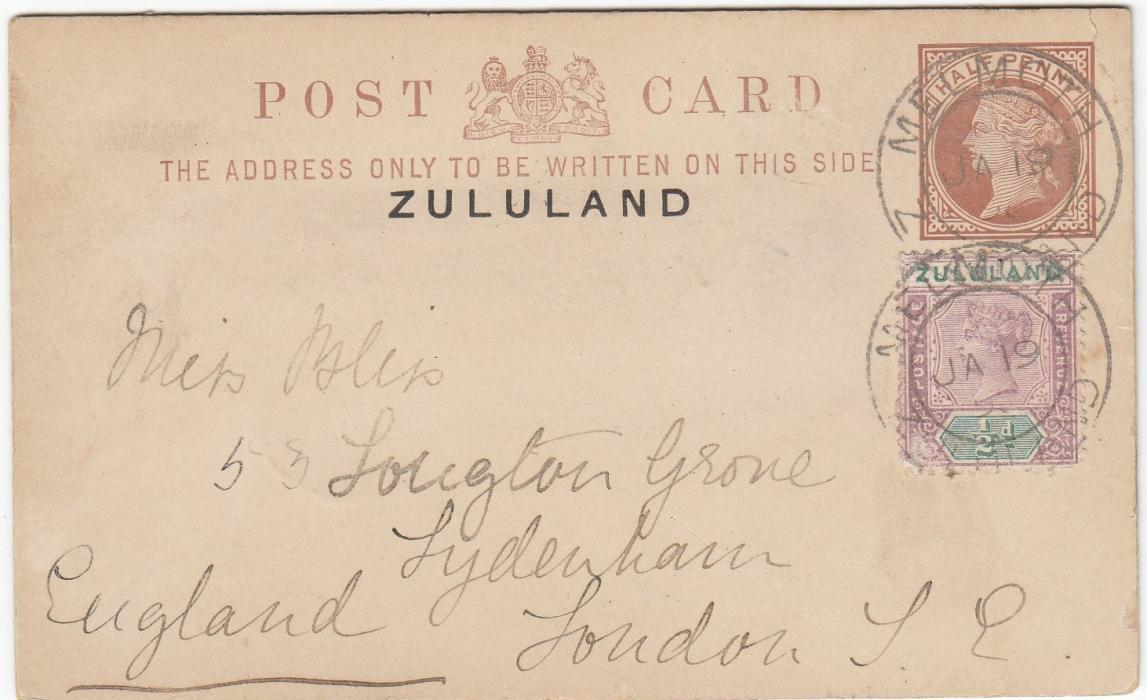 POST CARD
THE ADDRESS ONLY TO BE WRITTEN ON THIS SIDE
ZULULAND
HALF PENNY
MELMOTH
JA 19
ZULULAND
ZULULAND
POSTAGE
REVENUE
½d
MELMOTH
JA 19
Miss Bliss
53 Longton Grove
Sydenham
England
London S. E